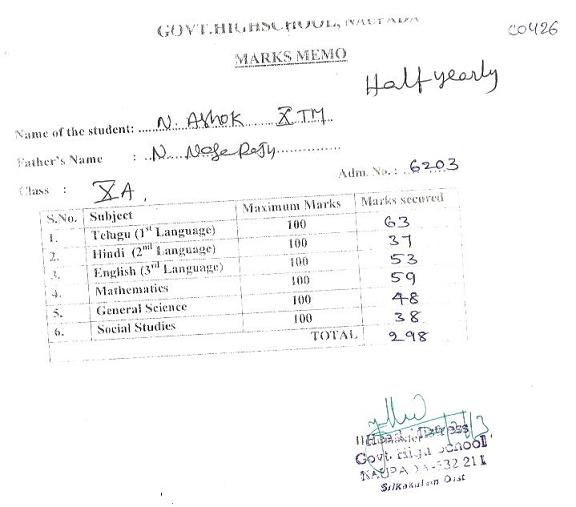 GOVT.HIGHSCHOOL, NAUPADA
CO426
MARKS MEMO
Half yearly
Name of the student: N. Ashok X TM
Father's Name : N
Adm. No.: 6203
Class : XA.
S.No. Subject Maximum Marks Marks secured
1. Telugu (1st Language) 100 63
2. Hindi (2nd Language) 100 37
3. English (3rd Language) 100 53
4. Mathematics 100 59
5. General Science 100 48
6. Social Studies 100 38
TOTAL 298
Govt. High School
NAUPADA-532 211
Srikakulam Dist